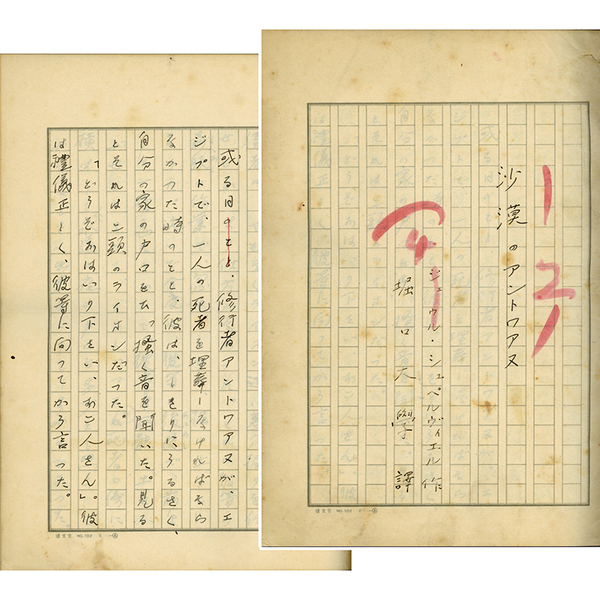 沙漠のアントワアヌ
ジュウル・シュペルヴィエル作
堀口大學 譯
或る日のこと、修行者アントワアヌが、エ
ジプトで、一人の死者を埋葬しなければなら
なかつた時のこと、彼は、しきりにうるさく
自分の家の戸口をひつ掻く音を聞いた。見る
とそれは二頭のライオンだつた。
「どうぞおはいり下さい、お二人さん」。彼
は禮儀正しく、彼等に向つてかう言つた。